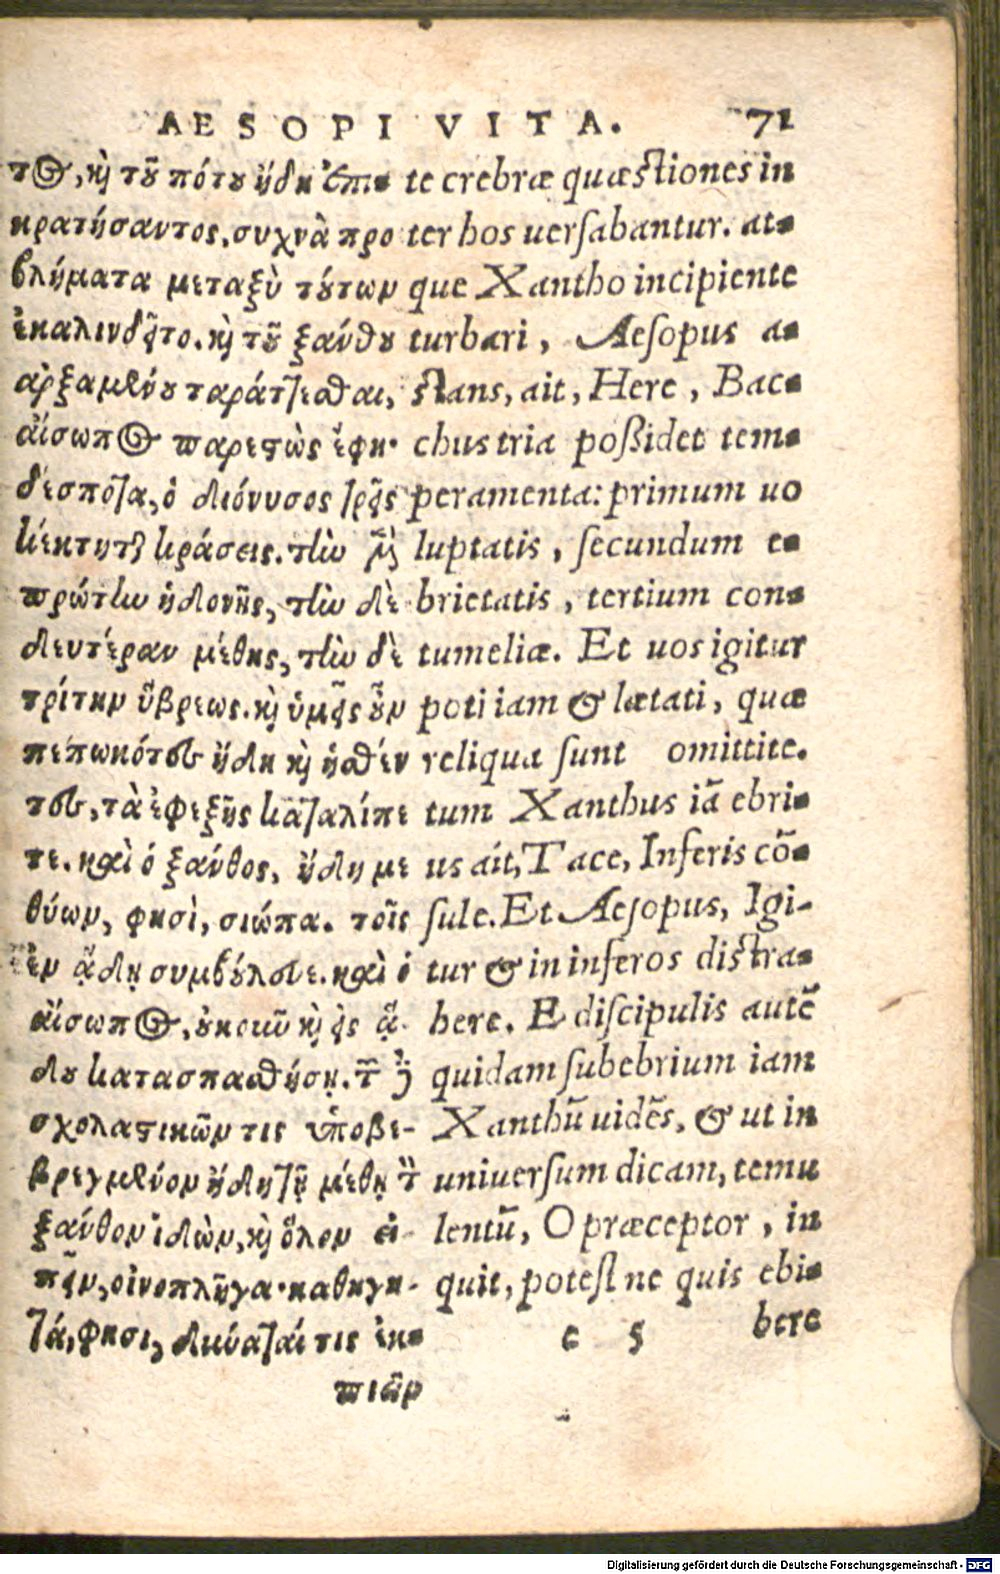 AESOPI VITA. 71
τος, καὶ τοῦ πότου ἤδη ἐπι-
κρατήσαντος, συχνὰ προ
βλήματα μεταξὺ τούτων
ἐκαλινδεῖτο. καὶ τοῦ ξάνθου
ἀρξαμένου ταράττεσθαι,
αἴσωπος παρεστὼς ἔφη·
δέσποτα, ὁ διόνυσος τρεῖς
κέκτηται κράσεις. τὴν μὲν
πρώτην ἡδονῆς, τὴν δὲ
δευτέραν μέθης, τὴν δὲ
τρίτην ὕβρεως. καὶ ὑμεῖς οὖν
πεπωκότες ἤδη καὶ ἡσθέν
τες, τὰ ἐφεξῆς καταλίπε
τε. καὶ ὁ ξάνθος, ἤδη με
θύων, φησὶ, σιώπα. τοῖς
ἐν ᾅδῃ συμβούλευε. καὶ ὁ
αἴσωπος, οὐκοῦν καὶ εἰς ᾅ-
δου κατασπασθήσῃ. τῶν δὲ
σχολαστικῶν τις ὑποβε-
βρεγμένον ἤδη τῇ μέθῃ τὸν
ξάνθον ἰδὼν, καὶ ὅλον εἰ-
πεῖν, οἰνοπλῆγα· καθηγη-
τά, φησι, δύναταί τις ἐκ-
πιεῖν
te crebræ quæstiones in
ter hos uersabantur. at-
que Xantho incipiente
turbari, Aesopus a-
stans, ait, Here, Bac-
chus tria poßidet tem-
peramenta: primum uo
luptatis, secundum e-
brietatis, tertium con-
tumeliæ. Et uos igitur
poti iam & lætati, quæ
reliqua sunt omittite.
tum Xanthus iã ebri-
us ait, Tace, Inferis cõ-
sule. Et Aesopus, Igi-
tur & in inferos distra-
here. E discipulis autẽ
quidam subebrium iam
Xanthũ uidẽs, & ut in
uniuersum dicam, temu
lentũ, O præceptor, in
quit, potest ne quis ebi-
e 5 bere
Digitalisierung gefördert durch die Deutsche Forschungsgemeinschaft - DFG